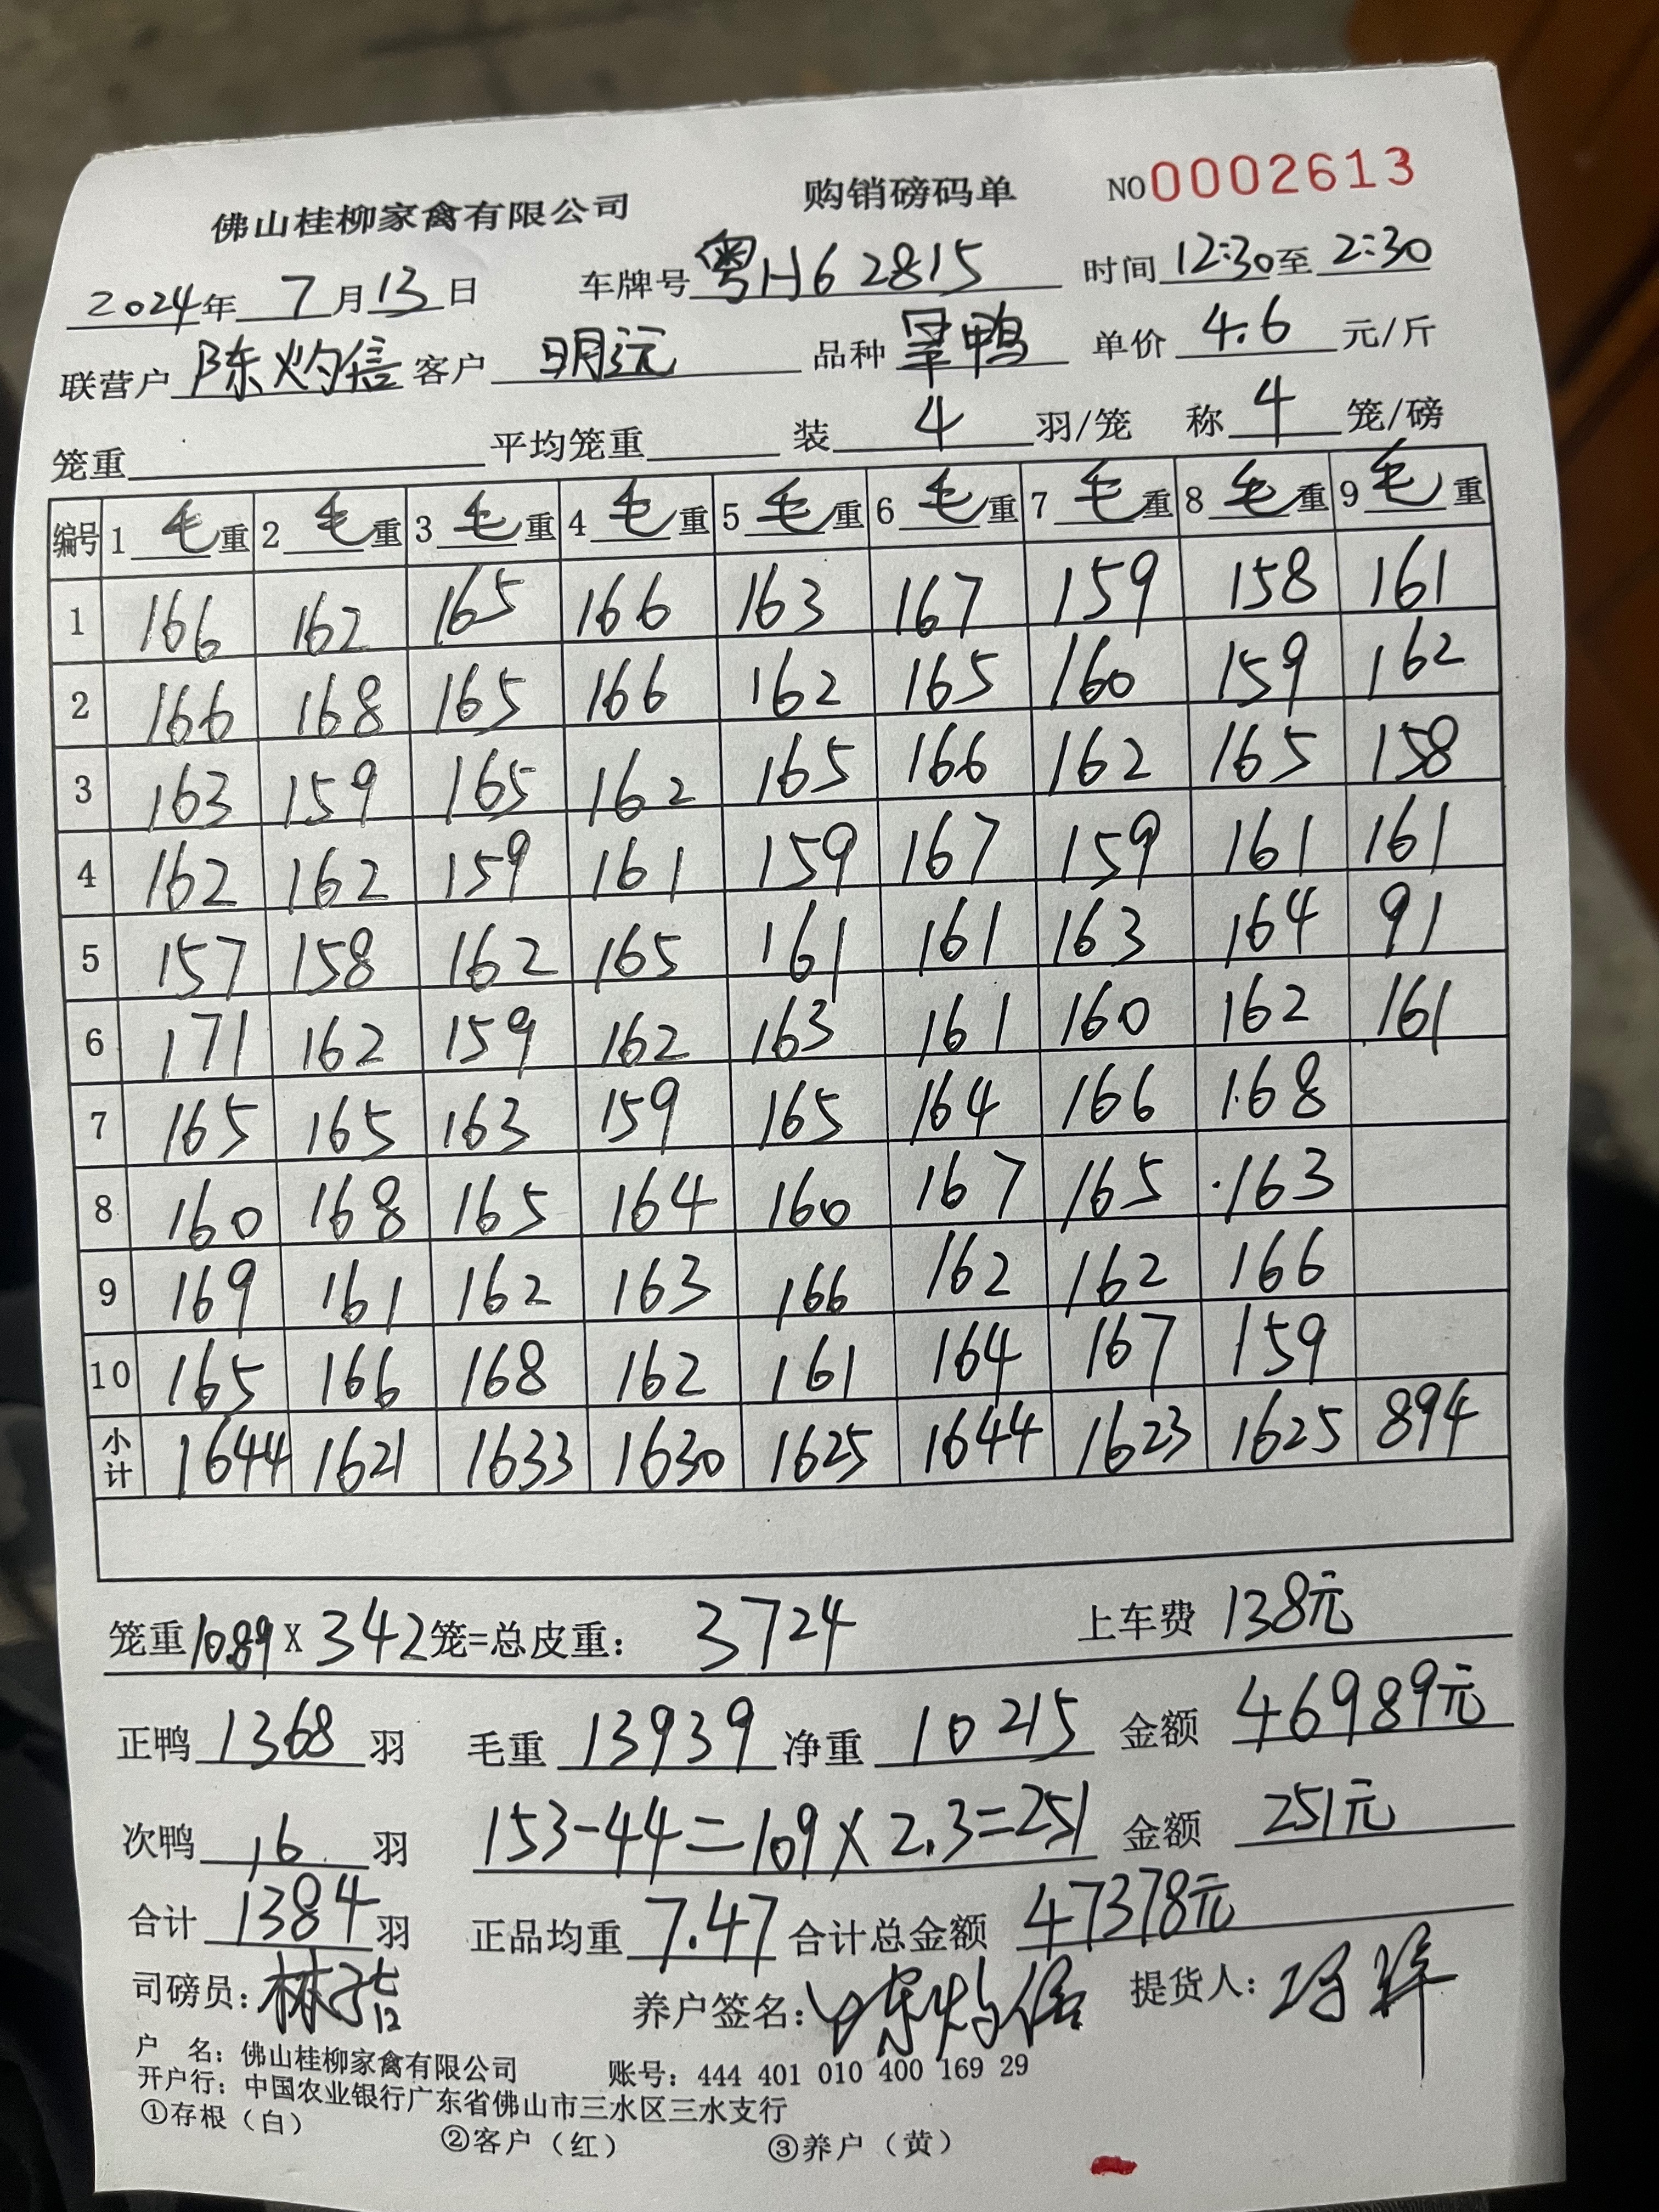 佛山桂柳家禽有限公司 购销磅码单 NO0002613
2024年 7月13日 车牌号 粤H62815 时间 12:30至 2:30
联营户 陈灼信 客户 明远 品种 旱鸭 单价 4.6 元/斤
笼重 平均笼重 装 4 羽/笼 称 4 笼/磅
编号 1 毛重 2 毛重 3 毛重 4 毛重 5 毛重 6 毛重 7 毛重 8 毛重 9 毛重
1 166 162 165 166 163 167 159 158 161
2 166 168 165 166 162 165 160 159 162
3 163 159 165 162 165 166 162 165 158
4 162 162 159 161 159 167 159 161 161
5 157 158 162 165 161 161 163 164 91
6 171 162 159 162 163 161 160 162 161
7 165 165 163 159 165 164 166 168
8 160 168 165 164 160 167 165 163
9 169 161 162 163 166 162 162 166
10 165 166 168 162 161 164 167 159
小计 1644 1621 1633 1630 1625 1644 1623 1625 894
笼重10.89X342笼=总皮重: 3724 上车费 138元
正鸭 1368 羽 毛重 13939 净重 10215 金额 46989元
次鸭 16 羽 153-44=109×2.3=251 金额 251元
合计 1384 羽 正品均重 7.47 合计总金额 47378元
司磅员: 养户签名: 陈灼信 提货人:
户 名: 佛山桂柳家禽有限公司 账号: 444 401 010 400 169 29
开户行: 中国农业银行广东省佛山市三水区三水支行
①存根(白) ②客户(红) ③养户(黄)